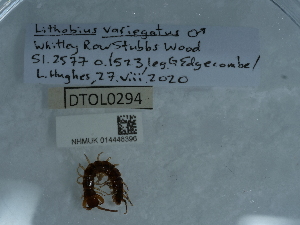 Lithobius variegatus ♂
Whitley Row Stubbs Wood
51.2577 0.1523, leg G Edgecombe/
L. Hughes, 27.viii.2020
DTOL0294
NHMUK 014448390